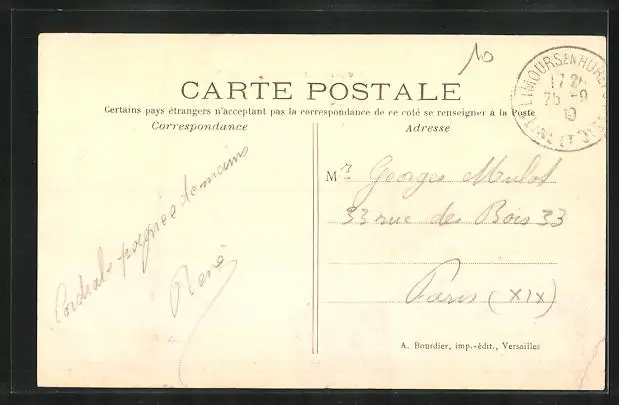 10
CARTE POSTALE
Certains pays étrangers n'acceptant pas la correspondance de ce coté se renseigner à la Poste
Correspondance
Adresse
LIMOURS EN HUREPOIX
17 2
25 -9
SEINE ET OISE
Mr Georges Mulot
33 rue des Bois 33
Paris (XIX)
Cordiale poignée de mains
René
A. Bourdier, imp.-édit., Versailles